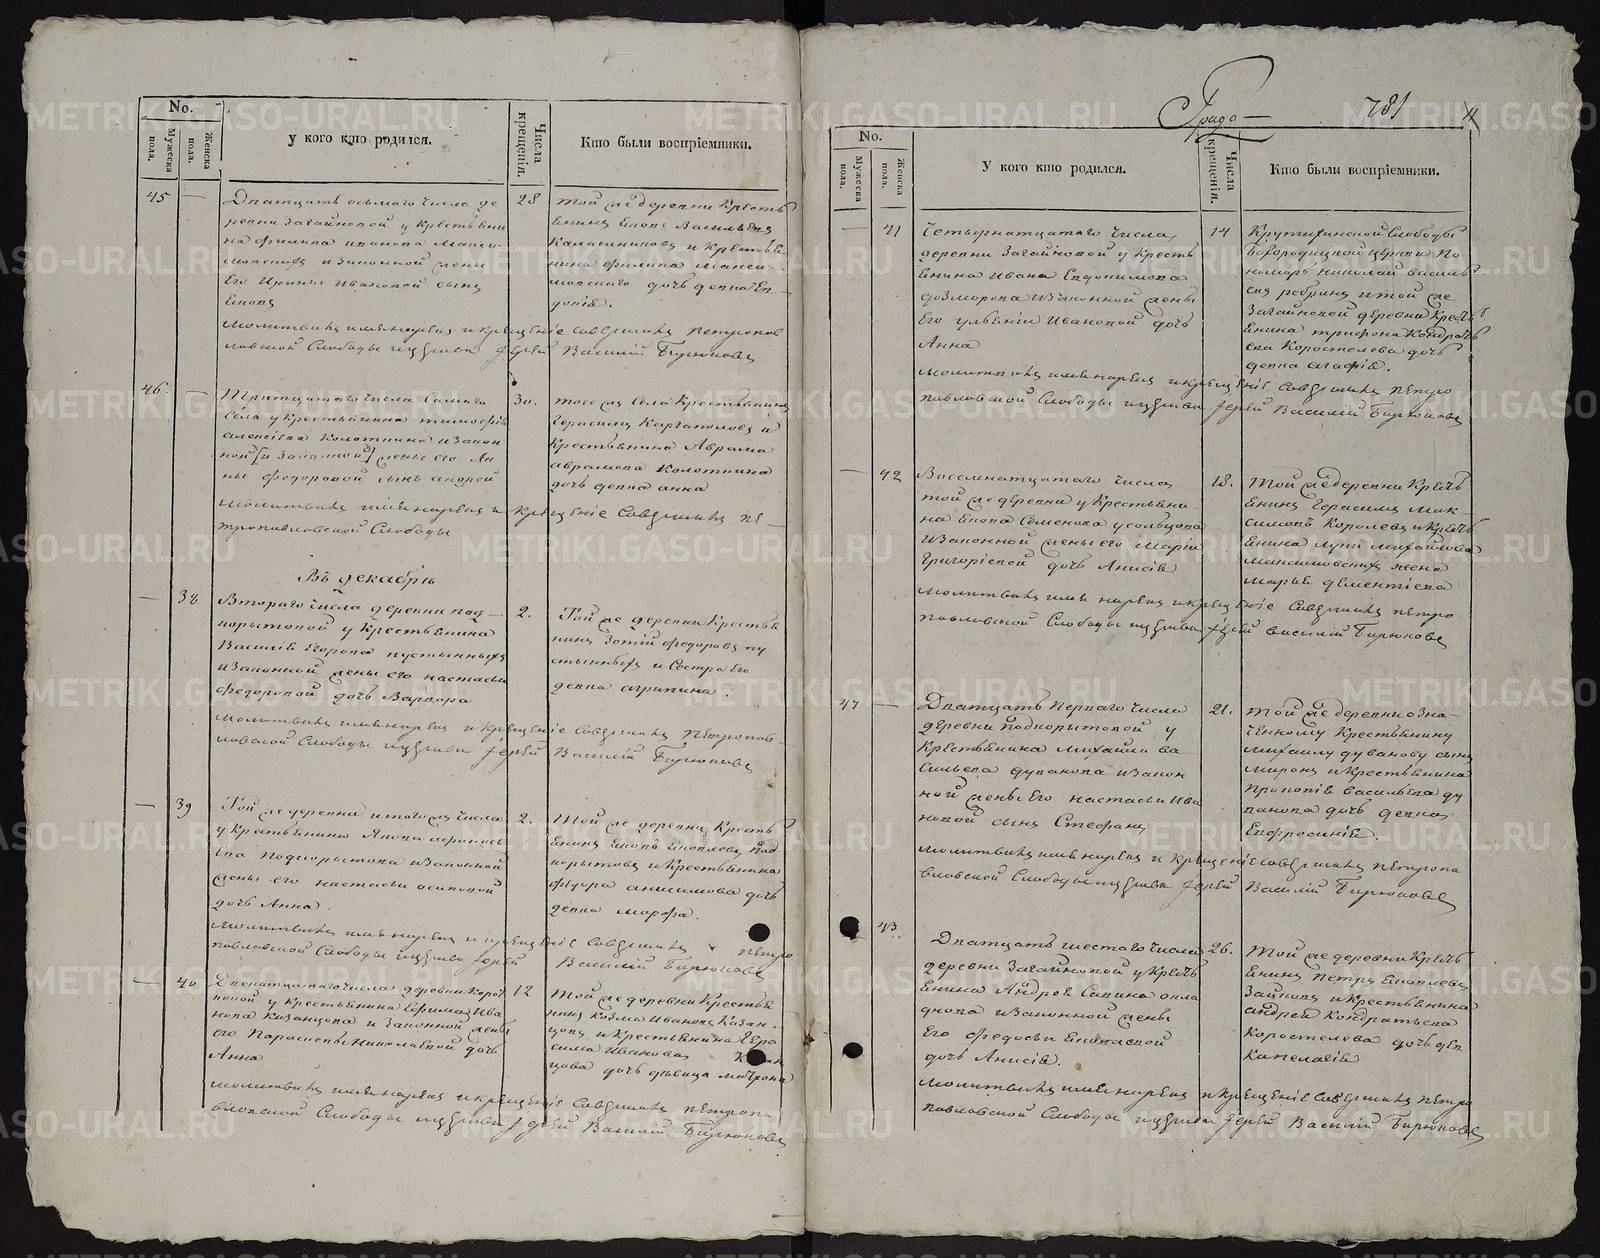 No.
Мужеска пола.
Женска пола.
У кого кто родился.
Числа крещенія.
Кто были воспріемники.
45
—
Дватцать осьмаго числа де
ревни Загайновой у крестьяни
на Филипа Иванова
и законной жены
Его Ирины Ивановой сынъ
28
той же деревни Кресть
Калашниковъ и крестья
нина Филипа
дочь девка Ев
докія.
молитвилъ имя нарекъ и крещеніе совершилъ Петропав
ловской Слободы Іерей Василій Бирюковъ
46
—
Тритцатаго числа Самаго
Села у крестьянина Тимофея
Алексѣева Колотнина и закон
ной [и законной] жены его Ан
ны Федоровой сынъ Андрей
30.
того же села Крестьянинъ
Герасимъ Каргаполовъ и
Крестьянина Аврама
Аврамова Колотнина
дочь девка Анна
молитвилъ имя нарекъ и крещеніе совершилъ Пе
тропавловской Слободы
Въ декабрѣ
—
38
Втораго числа деревни Под
корытовой у Крестьянина
Василія Егорова Пустынныхъ
и законной жены его Настасьи
Федоровой дочь Варвара
2.
Той же деревни Крестья
нинъ Зотій Федоровъ Пу
стынныхъ и Сестра Его
девка Агрипина.
молитвилъ имя нарекъ и крещеніе совершилъ Петропав
ловской Слободы Іерей Василій Бирюковъ
—
39
Той же деревни и того жъ числа
у Крестьянина Якова
Подкорытова и законной
жены его Настасьи Осиповой
дочь Анна.
2.
Той же деревни Кресть
янинъ Яковъ Яковлевъ Под
корытовъ и Крестьянина
Федора Анисимова дочь
девка Марфа.
молитвилъ имя нарекъ и крещеніе совершилъ Петро
павловской Слободы Іерей Василій Бирюковъ
—
40
Двенатцатаго числа деревни
у Крестьянина Ефима Ива
нова Казанцова и законной жены
его Параскевы Николаевой дочь
Анна
12
Той же деревни Крестья
нинъ Козма Ивановъ Казан
цовъ и Крестьянина Гера
сима Иванова Казан
цова дочь девица Матрона
молитвилъ имя нарекъ и крещеніе совершилъ Петропа
вловской Слободы Іерей Василій Бирюковъ
Града
781
No.
Мужеска пола.
Женска пола.
У кого кто родился.
Числа крещенія.
Кто были воспріемники.
—
41
Четырнатцатаго числа,
деревни Загайновой у Кресть
янина Ивана Евдокимова
Дозморова и законной жены
Его Ульяніи Ивановой дочь
Анна
14
Крутихинской Слободы
Богородицкой церкви По
номарь Николай Василь
евъ и той же
Загайновой деревни Кресть
янина Трифона Кондрать
ева Коростелева дочь
девка Агафія.
молитвилъ имя нарекъ и крещеніе совершилъ Петро
павловской Слободы Іерей Василій Бирюковъ
—
42
Восемнатцатаго числа
той же деревни у Крестьяни
на Якова Семенова Усольцова
и законной жены его Маріи
Григоріевой дочь Анисія
18.
Той же деревни Кресть
янинъ Герасимъ Мак
симовъ Королевъ и Кресть
янина Луки Михайлова
жена
Марья Дементіева
молитвилъ имя нарекъ и крещеніе совершилъ Петро
павловской Слободы Іерей Василій Бирюковъ
47
—
Дватцать перваго числа
деревни Подкорытовой у
Крестьянина Михаила Ва
сильева Дуванова и закон
ной жены Его Настасьи Ива
новой сынъ Стефанъ
21.
той же деревни озна
ченному Крестьянину
Михаилу Дуванову сынъ
Миронъ и Крестьянина
Прокопія Васильева Ду
ванова дочь девка
Ефросинія.
молитвилъ имя нарекъ и крещеніе совершилъ Петропа
вловской Слободы Іерей Василій Бирюковъ
43.
Дватцать шестаго числа
деревни Загайновой у Кресть
янина Андрея Савина
и законной жены
Его Федосьи Яковлевой
дочь Анисія.
26.
Той же деревни Кресть
янинъ Петръ Яковлевъ
и Крестьянина
Андрея Кондратьева
Коростелева дочь дев
ка Пелагія
молитвилъ имя нарекъ и крещеніе совершилъ Петро
павловской Слободы Іерей Василій Бирюковъ
METRIKI.GASO-URAL.RU